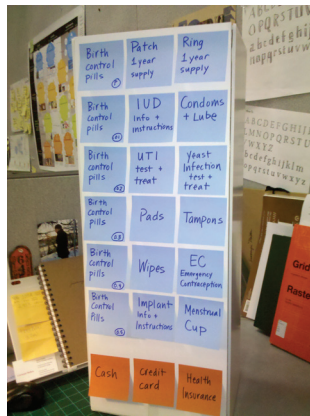 Birth control pills
Patch 1 year supply
Ring 1 year supply
Birth control pills
IUD Info + instructions
Condoms + Lube
Birth control pills
UTI test + treat
Yeast Infection test + treat
Birth control pills
Pads
Tampons
Birth control pills
Wipes
EC Emergency Contraception
Birth Control Pills
Implant Info + Instructions
Menstrual Cup
Cash
Credit card
Health Insurance
Grid
Raste